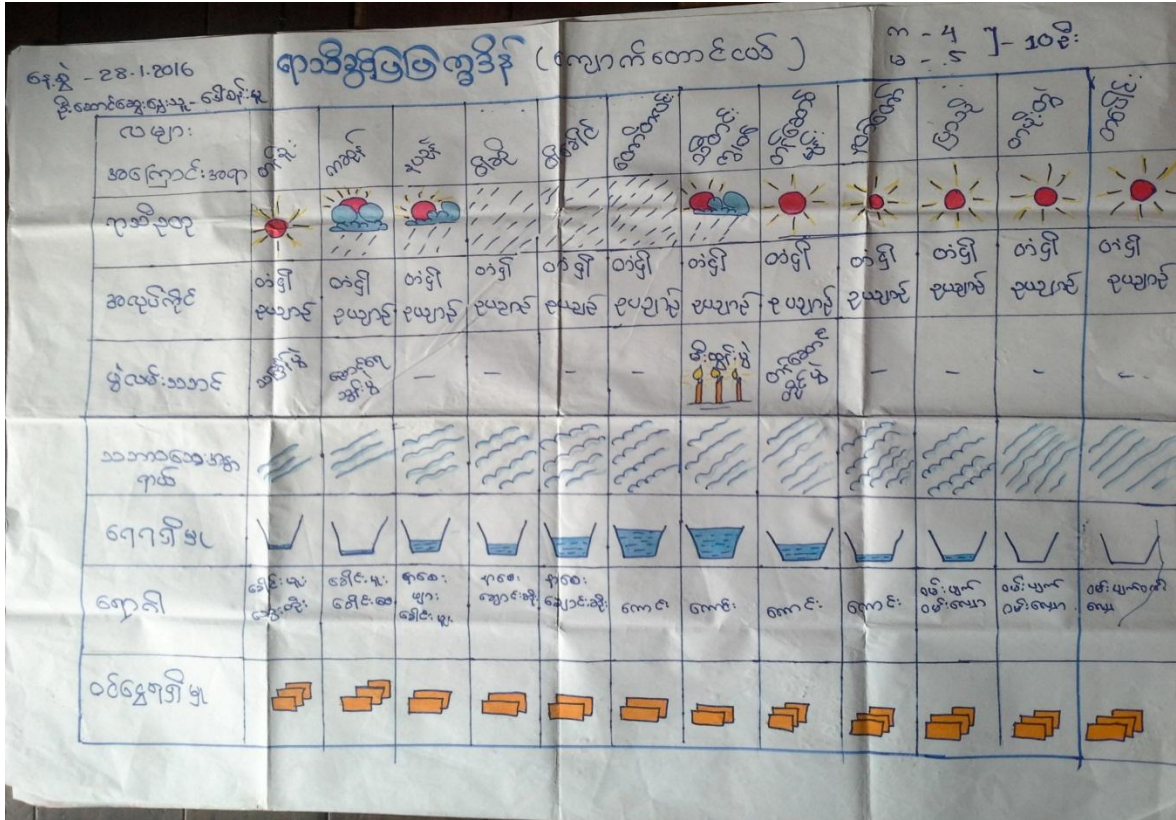 နေ့စွဲ - 28.1.2016
ရာသီခွင်ပြပြက္ခဒိန် (ကျောက်တောင်ငယ်)
က - 4
မ - 5
] - 10 ဦး
လများ
အကြောင်းအရာ
တန်ခူး ကဆုန် နယုန် ဝါဆို ဝါခေါင် တော်သလင်း သီတင်းကျွတ် တန်ဆောင်မုန်း နတ်တော် ပြာသို တပို့တွဲ တပေါင်း
ရာသီဥတု
အလုပ်ကိုင် တံငါ ဥယျာဉ် တံငါ ဥယျာဉ် တံငါ ဥယျာဉ် တံငါ ဥယျာဉ် တံငါ ဥယျာဉ် တံငါ ဥယျာဉ် တံငါ ဥယျာဉ် တံငါ ဥယျာဉ် တံငါ ဥယျာဉ် တံငါ ဥယျာဉ် တံငါ ဥယျာဉ် တံငါ ဥယျာဉ်
ပွဲလမ်းသဘင် သင်္ကြန်ပွဲ ညောင်ရေသွန်းပွဲ - - - - မီးထွန်းပွဲ တန်ဆောင်တိုင်ပွဲ - - - -
သဘာဝဘေးအန္တရာယ်
ရေရရှိမှု
ရောဂါ ခေါင်းမူး ခေါင်းမူး ဖျား ချောင်းဆိုး ချောင်းဆိုး ကောင်း ကောင်း ကောင်း ကောင်း ဝမ်းပျက် ဝမ်းလျော ဝမ်းပျက် ဝမ်းလျော ဝမ်းပျက်
ဝင်ငွေရရှိမှု